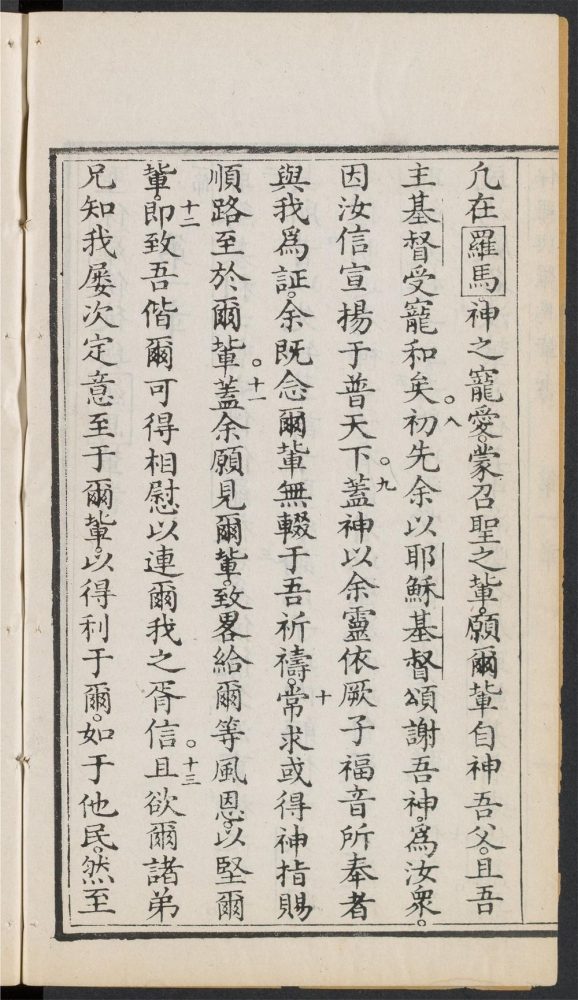 凢在羅馬神之寵愛。蒙召聖之軰。願爾軰自神吾父。且吾
主基督受寵和矣。八初先余以耶穌基督頌謝吾神。爲汝衆。
因汝信宣揚于普天下。九蓋神以余靈依厥子福音所奉者
與我爲証。余既念爾軰無輟于吾祈禱。十常求或得神指賜
順路至於爾軰。十一蓋余願見爾軰。致畧給爾等風恩。以堅爾
軰。十二即致吾偕爾可得相慰以連爾我之胥信。十三且欲爾諸弟
兄知我屡次定意至于爾軰。以得利于爾。如于他民。然至